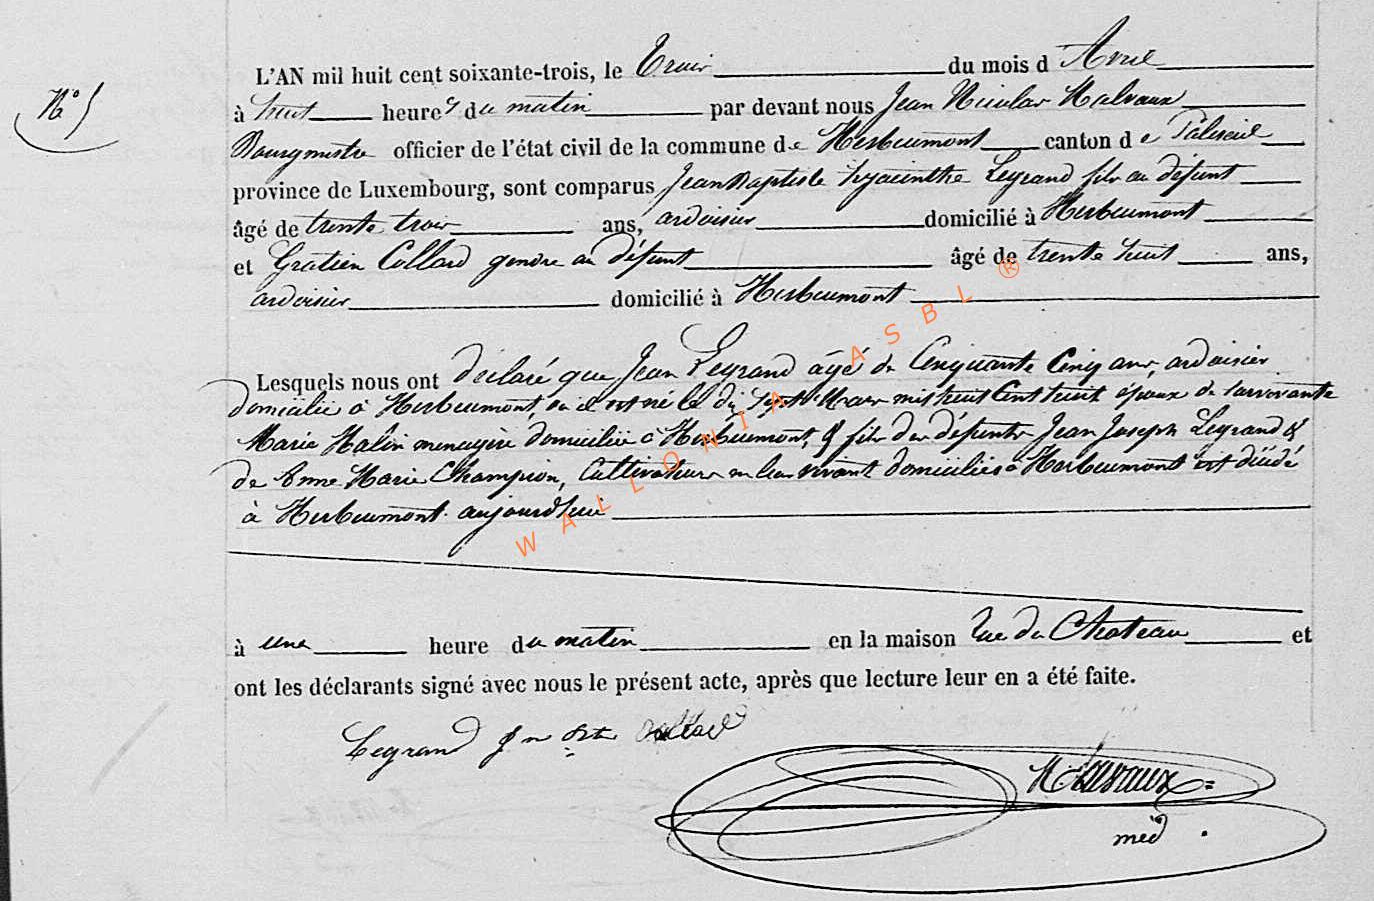 N° 5
L'AN mil huit cent soixante-trois, le Trois du mois d'Avril
à huit heures du matin par devant nous Jean Nicolas Malvaux
Bourgmestre officier de l'état civil de la commune de Herbeumont canton de Paliseul
province de Luxembourg, sont comparus Jean Baptiste hyacinthe Legrand fils au défunt
âgé de trente trois ans, ardoisier domicilié à Herbeumont
et Gratien Collard gendre au défunt âgé de trente huit ans,
ardoisier domicilié à Herbeumont
Lesquels nous ont déclaré que Jean Legrand âgé de Cinquante Cinq ans, ardoisier
domicilié à Herbeumont, où il est né le dix sept Mars mil huit Cent huit époux de survivante
Marie Malin menagère domiciliée à Herbeumont, & fils des défunts Jean Joseph Legrand &
de Anne Marie Champion, Cultivateurs en leur vivant domiciliés à Herbeumont est décédé
à Herbeumont aujourd'hui
à une heure du matin en la maison rue du Chateau et
ont les déclarants signé avec nous le présent acte, après que lecture leur en a été faite.
Legrand Jn Bte Collard
Malvaux
WALLONIA ASBL ®